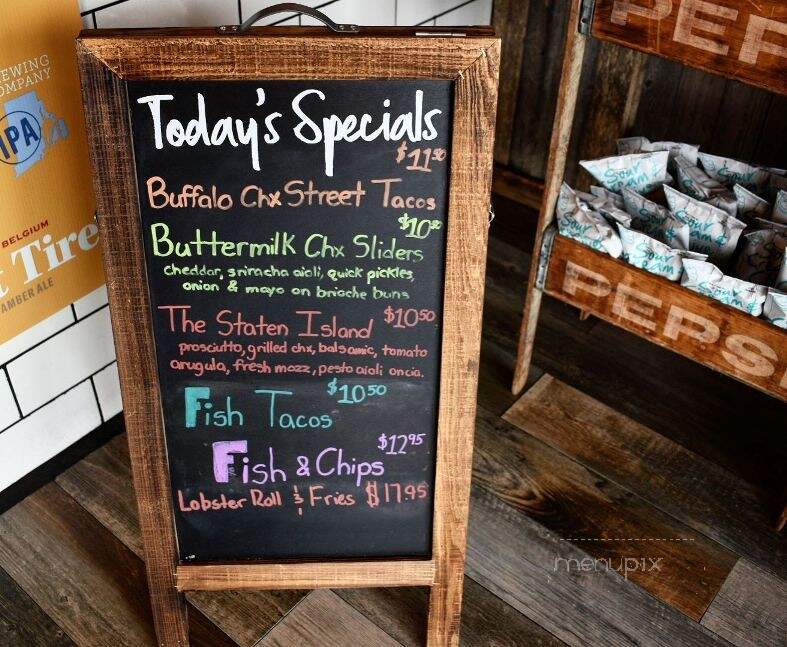 EWING
OMPANY
IPA
BELGIUM
t Tire
AMBER ALE
Today's Specials
$11.50
Buffalo Chx Street Tacos
$10.50
Buttermilk Chx Sliders
cheddar, sriracha aioli, quick pickles,
onion & mayo on brioche buns
The Staten Island $10.50
prosciutto, grilled chx, balsamic, tomato
arugula, fresh mozz, pesto aioli on cia.
$10.50
Fish Tacos
$12.95
Fish & Chips
Lobster Roll & Fries $17.95
PEP
Sour
Cream &
Sour
Cream &
Sour
Cream &
PEPS
menupix